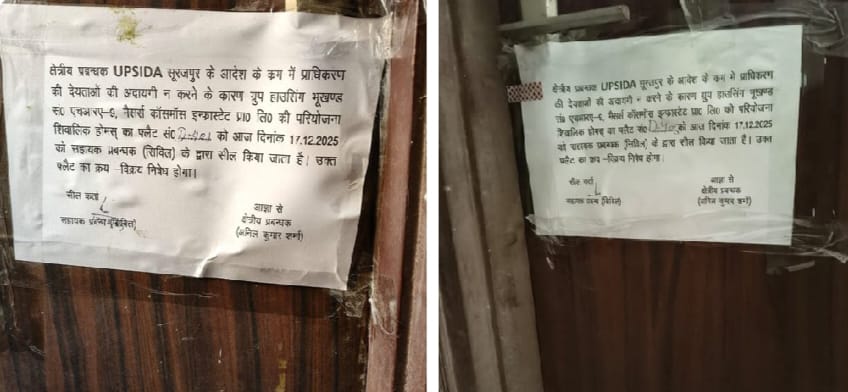 क्षेत्रीय प्रबन्धक UPSIDA सूरजपुर के आदेश के क्रम में प्राधिकरण
की देयताओं की अदायगी न करने के कारण ग्रुप हाउसिंग भूखण्ड
सं0 एचआरए-6, मैसर्स कॉसमॉस इन्फ्रास्टेट प्रा0 लि0 की परियोजना
शिवालिक होम्स का फ्लैट सं0 को आज दिनांक 17.12.2025
को सहायक प्रबन्धक (सिविल) के द्वारा सील किया जाता है। उक्त
फ्लैट का क्रय –विक्रय निषेध होगा।
सील कर्ता
सहायक प्रबन्धक (सिविल)
आज्ञा से
क्षेत्रीय प्रबन्धक
(अनिल कुमार शर्मा)
क्षेत्रीय प्रबन्धक UPSIDA सूरजपुर के आदेश के क्रम में प्राधिकरण
की देयताओं की अदायगी न करने के कारण ग्रुप हाउसिंग भूखण्ड
सं0 एचआरए-6, मैसर्स कॉसमॉस इन्फ्रास्टेट प्रा0 लि0 की परियोजना
शिवालिक होम्स का फ्लैट सं0 को आज दिनांक 17.12.2025
को सहायक प्रबन्धक (सिविल) के द्वारा सील किया जाता है। उक्त
फ्लैट का क्रय –विक्रय निषेध होगा।
सील कर्ता
सहायक प्रबन्धक (सिविल)
आज्ञा से
क्षेत्रीय प्रबन्धक
(अनिल कुमार शर्मा)